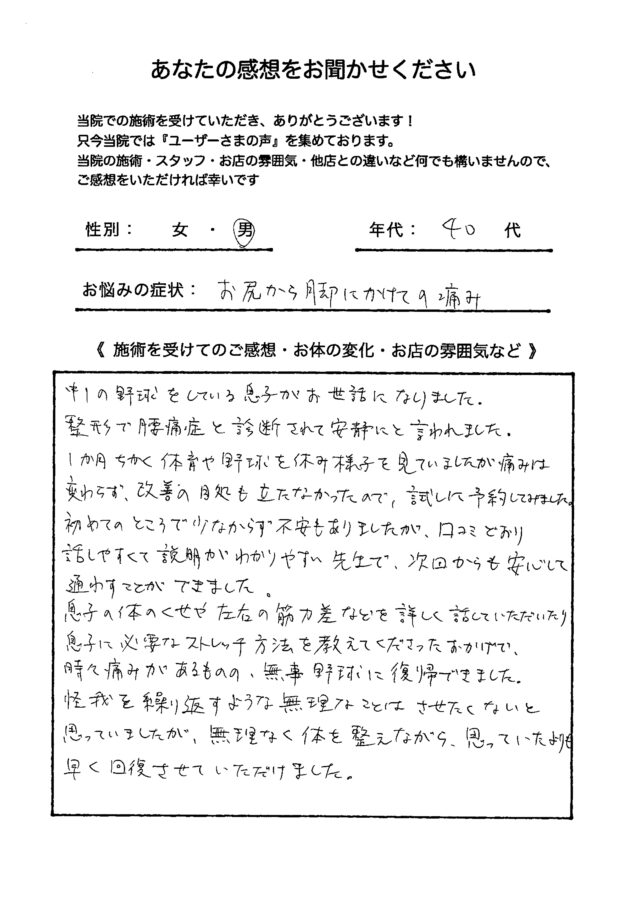 あなたの感想をお聞かせください
当院での施術を受けていただき、ありがとうございます！
只今当院では『ユーザーさまの声』を集めております。
当院の施術・スタッフ・お店の雰囲気・他店との違いなど何でも構いませんので、
ご感想をいただければ幸いです
性別： 女 ・ 男 年代： 40 代
お悩みの症状： お尻から脚にかけての痛み
《 施術を受けてのご感想・お体の変化・お店の雰囲気など 》
中1の野球をしている息子がお世話になりました。
整形で腰痛症と診断されて安静にと言われました。
1か月ちかく体育や野球を休み様子を見ていましたが痛みは
変わらず、改善の目処も立たなかったので、試しに予約してみました。
初めてのところで少なからず不安もありましたが、口コミどおり
話しやすくて説明がわかりやすい先生で、次回からも安心して
通わすことができました。
息子の体のくせや左右の筋力差などを詳しく話していただいたり
息子に必要なストレッチ方法を教えてくださったおかげで、
時々痛みがあるものの、無事野球に復帰できました。
怪我を繰り返すような無理なことはさせたくないと
思っていましたが、無理なく体を整えながら、思っていたよりも
早く回復させていただけました。